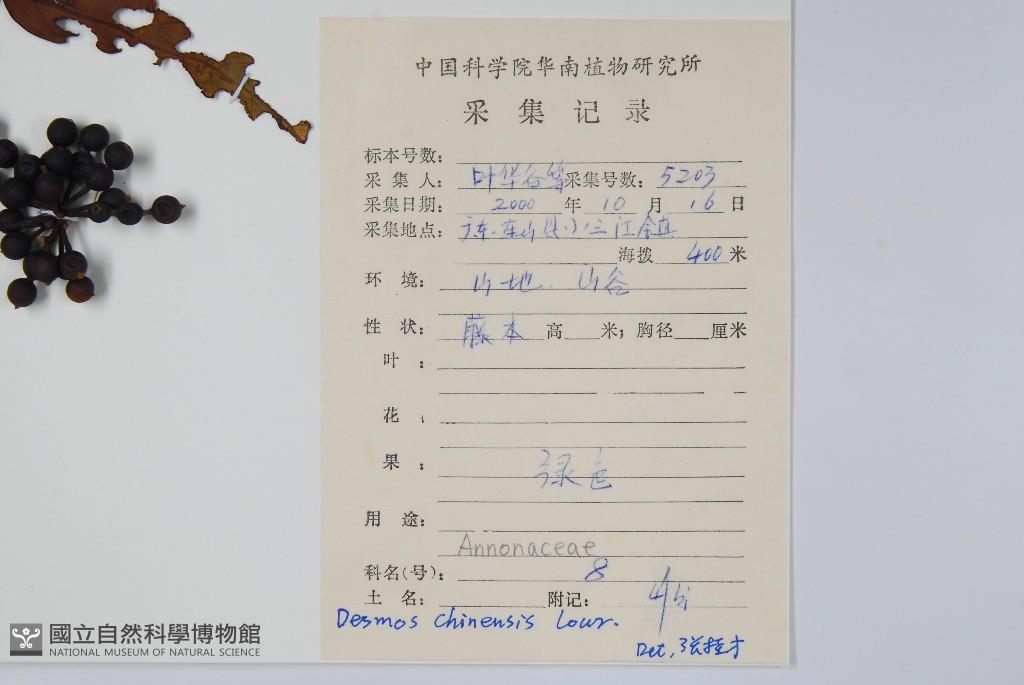 中国科学院华南植物研究所
采集记录
标本号数:
采集人: 叶华谷等 采集号数: 5203
采集日期: 2000 年 10 月 16 日
采集地点: 广东.连山(县)三江镇
海拨 400 米
环境: 山地. 山谷
性状: 藤本 高 米; 胸径 厘米
叶:
花:
果: 绿色
用途:
Annonaceae
科名(号): 8
土名: 附记:
Desmos chinensis Lour.
Det. 张桂才
國立自然科學博物館
NATIONAL MUSEUM OF NATURAL SCIENCE